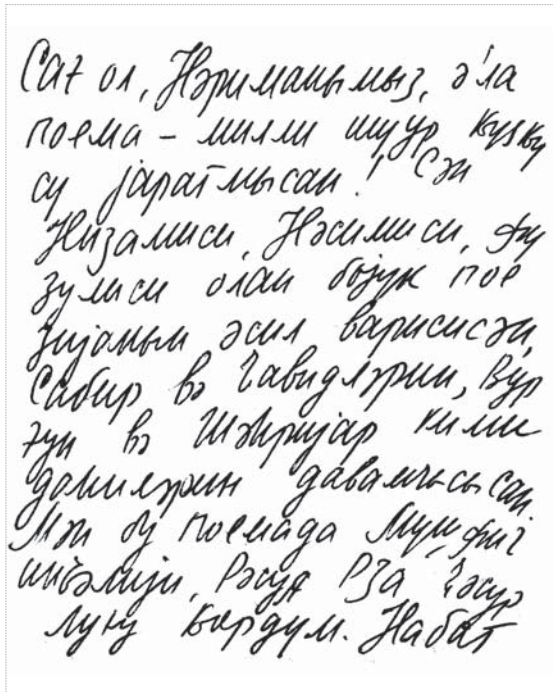 Сағ ол, Нәриманымыз, ә'ла
поема – милли шүур күзкү
сү јаратмысан! Сән
Низамиси, Нәсимиси, Фү
зулиси олан бөјүк пое
зијанын әсил варисисән,
Сабир вә Ҹавидләрин, Вур
ғун вә Шәһријар кими
даһиләрин давамчысысан.
Мән бу поемада Мүшфиг
инҹәлији, Рәсул Рза ҹәсур
луғу көрдүм. Набат